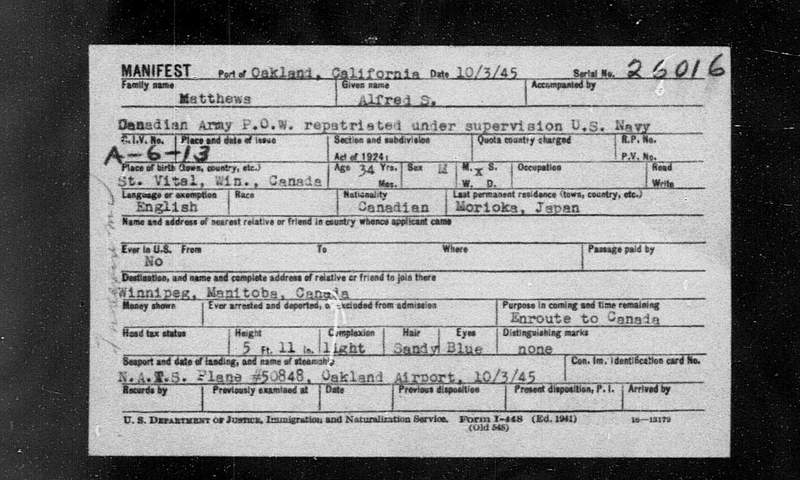 MANIFEST Port of Oakland, California Date 10/3/45 Serial No. 26016
Family name Given name Accompanied by
Matthews Alfred S.
Canadian Army P.O.W. repatriated under supervision U.S. Navy
C.I.V. No. Place and date of issue Section and subdivision Quota country charged R.P. No.
A-6-13 Act of 1924: P.V. No.
Place of birth (town, country, etc.) Age 34 Yrs. Sex M M. x S. Occupation Read
St. Vital, Win., Canada Mos. W. D. Write
Language or exemption Race Nationality Last permanent residence (town, country, etc.)
English Canadian Morioka, Japan
Name and address of nearest relative or friend in country whence applicant came
Ever in U.S. From To Where Passage paid by
No
Destination, and name and complete address of relative or friend to join there
Winnipeg, Manitoba, Canada
Money shown Ever arrested and deported, or excluded from admission Purpose in coming and time remaining
Enroute to Canada
Head tax status Height Complexion Hair Eyes Distinguishing marks
5 Ft. 11 In. light Sandy Blue none
Seaport and date of landing, and name of steamship Con. Im. Identification card No.
N.A.T.S. Plane #50848, Oakland Airport, 10/3/45
Records by Previously examined at Date Previous disposition Present disposition, P.I. Arrived by
U. S. DEPARTMENT OF JUSTICE, Immigration and Naturalization Service. Form I-448 (Ed. 1941) 16—13179
(Old 548)